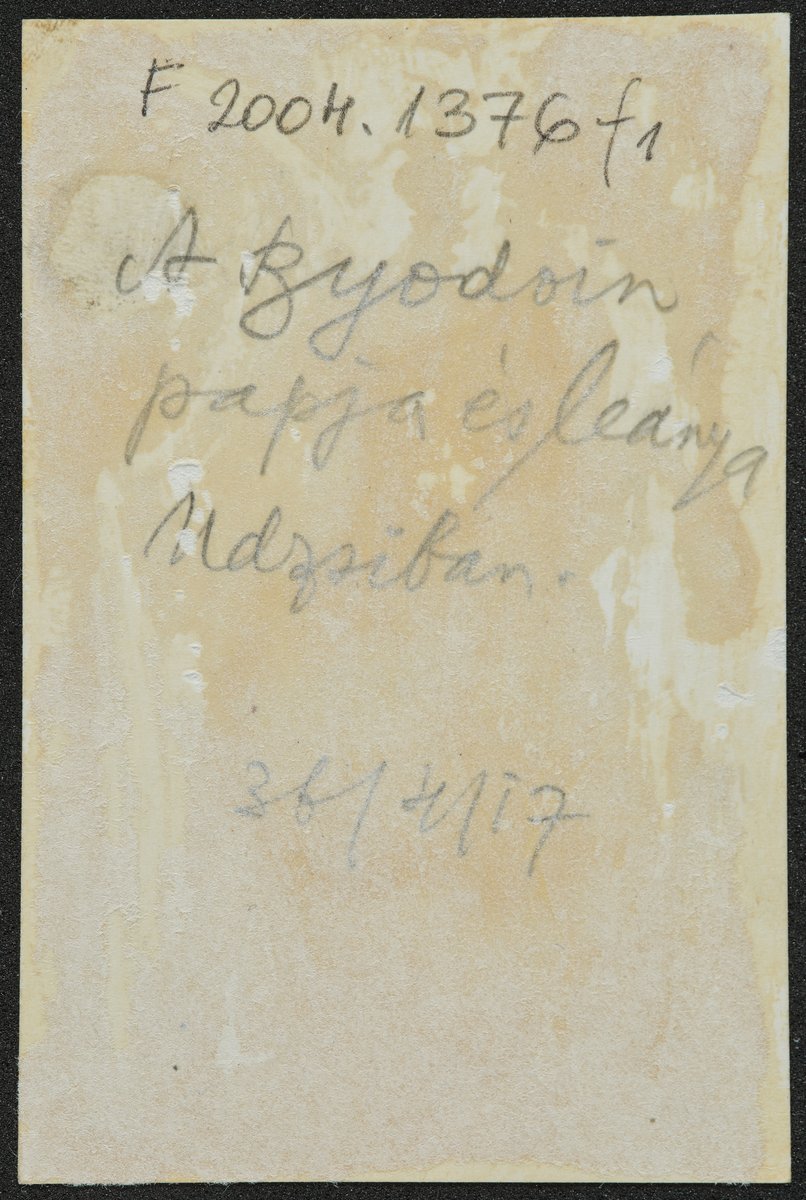 F 2004. 1376 f1
A Byodoin
papja és leánya
Udzsiban.
3b/4/17